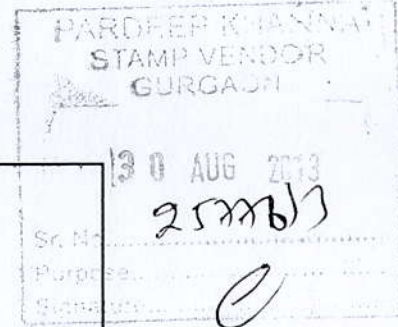 PARDEEP KHANNA
STAMP VENDOR
GURGAON
30 AUG 2013
Sr. No.
Purpose
Signature